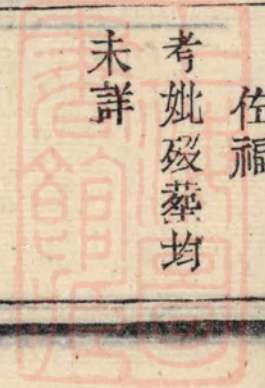 佐福
考妣歿葬均
未詳